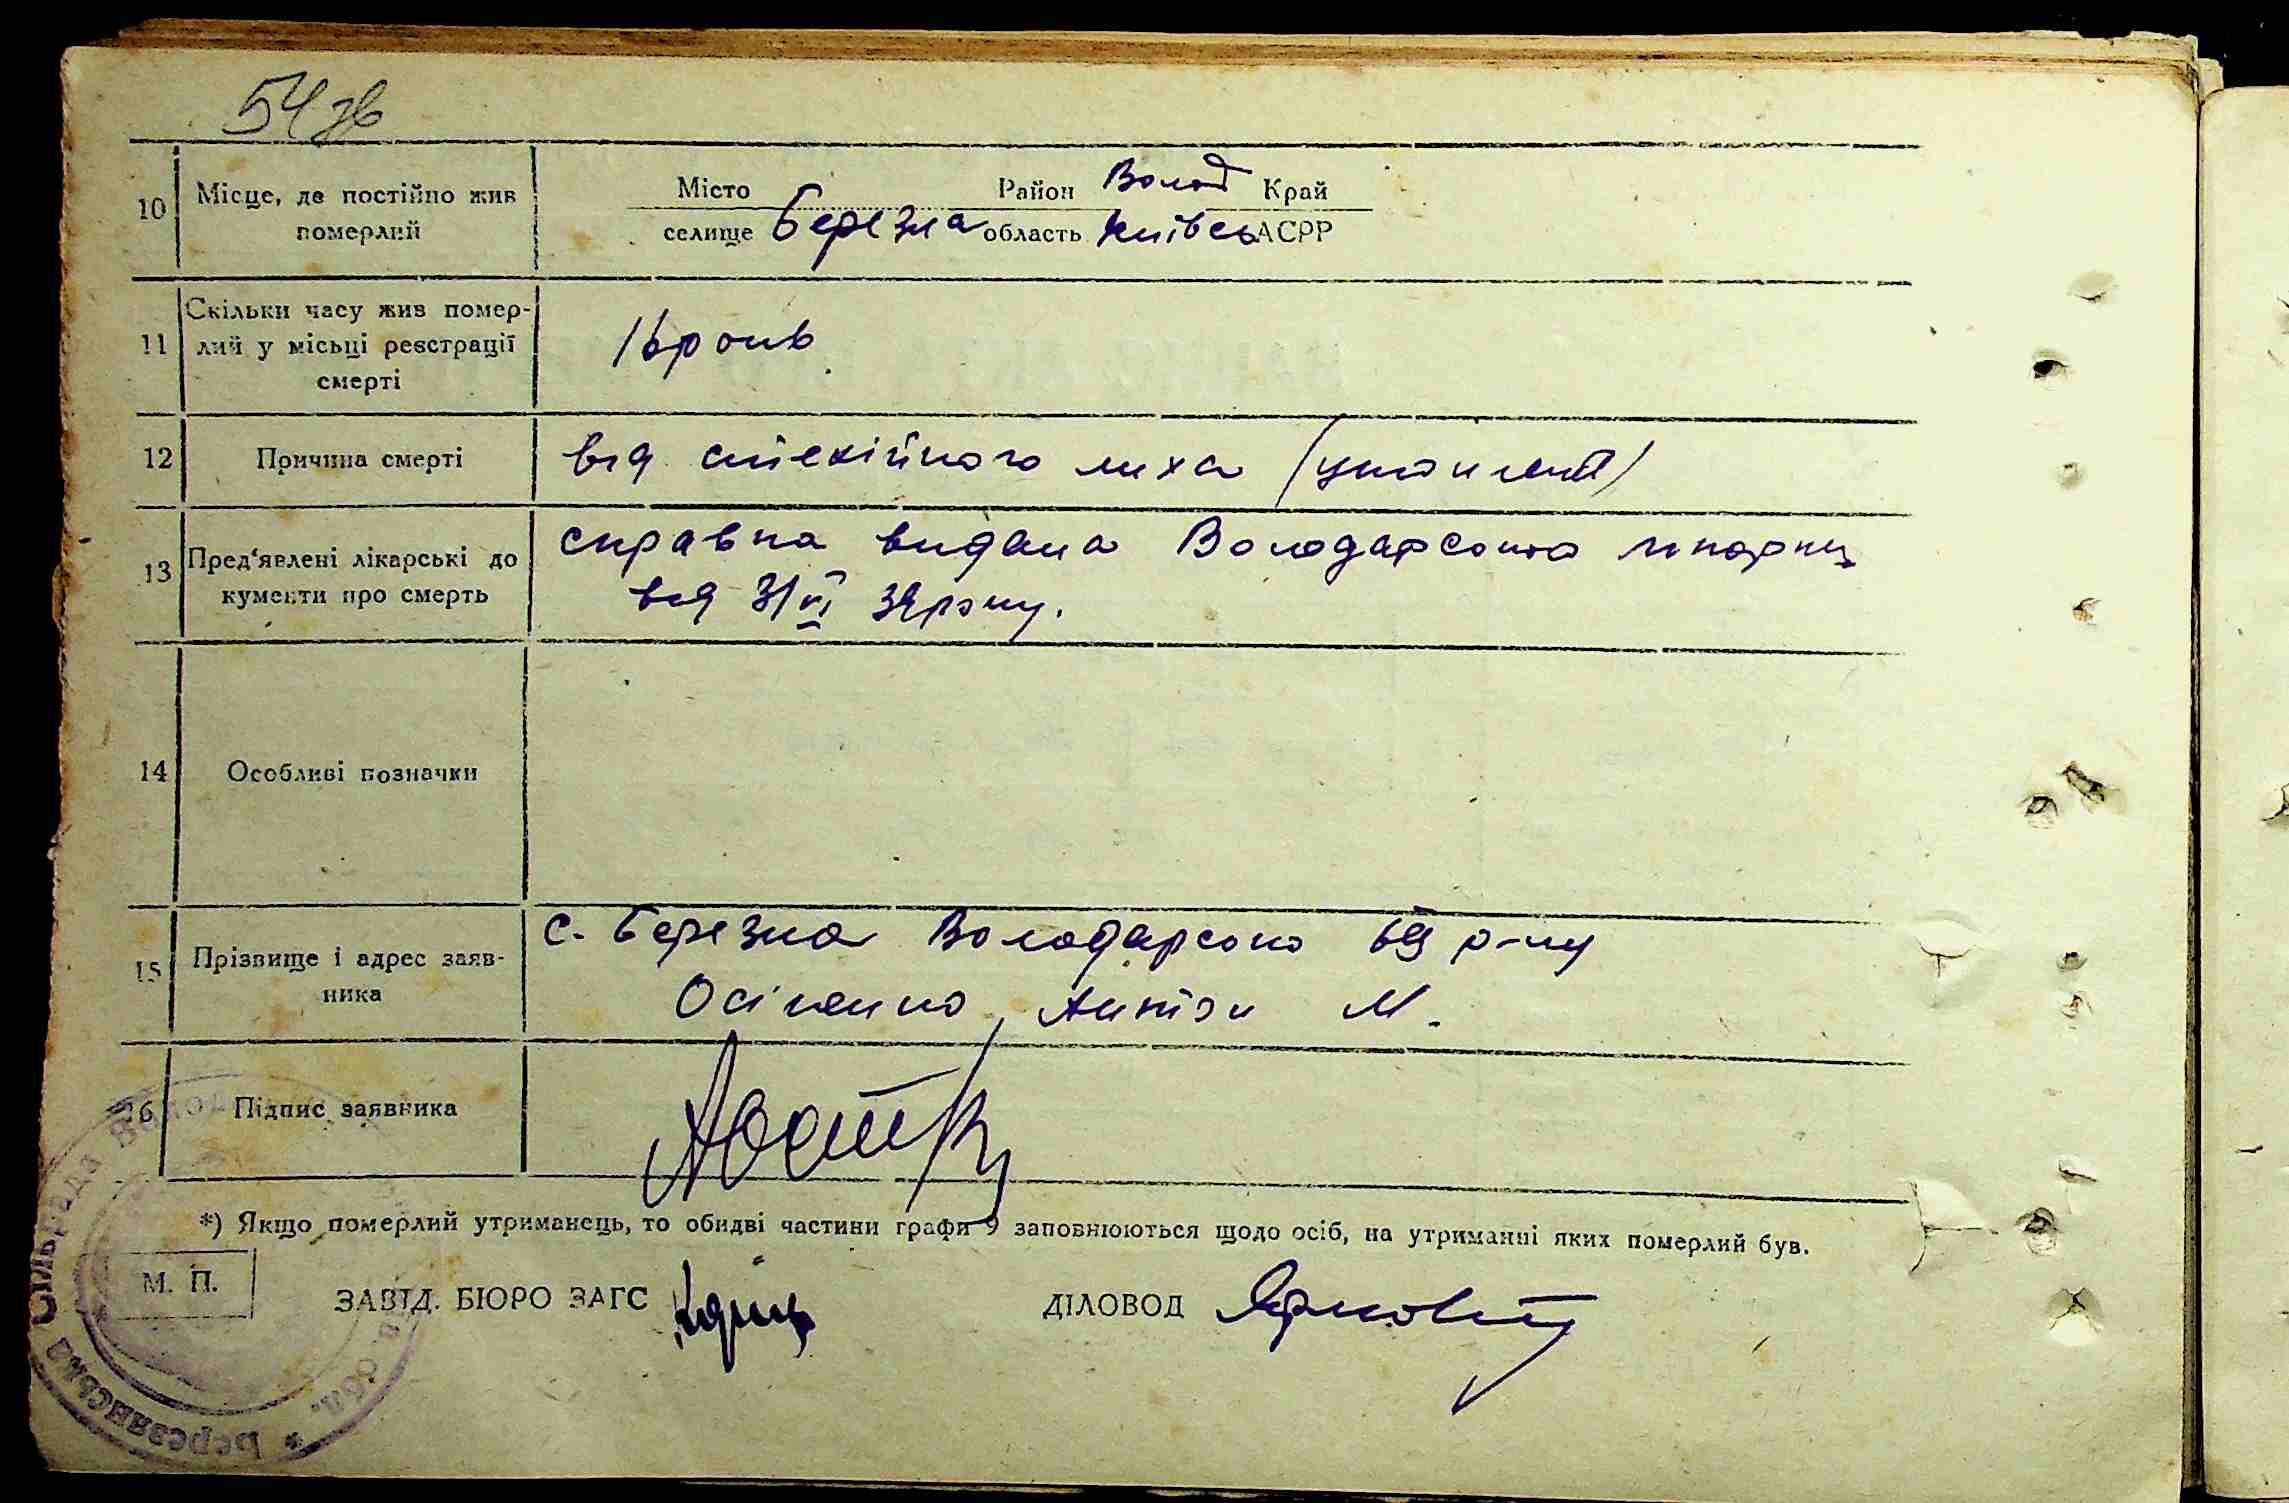 54 зв
10 Місце, де постійно жив померлий
Місто Район Волод Край
селище Березна область Київсь АСРР
11 Скільки часу жив помер-
лий у місьці реєстрації
смерті
16 років
12 Причина смерті
від стихійного лиха (утоплен)
13 Пред'явлені лікарські до
кументи про смерть
справка видана Володарською лікарнею
від 3/VI 39 року.
14 Особливі позначки
15 Прізвище і адрес заяв-
ника
с. Березна Володарсько го р-ну
М.
16 Підпис заявника
*) Якщо померлий утриманець, то обидві частини графи 9 заповнюються щодо осіб, на утриманні яких померлий був.
М. П.
ЗАВІД. БЮРО ЗАГС
ДІЛОВОД
Березянська Сільрада Волод обл.